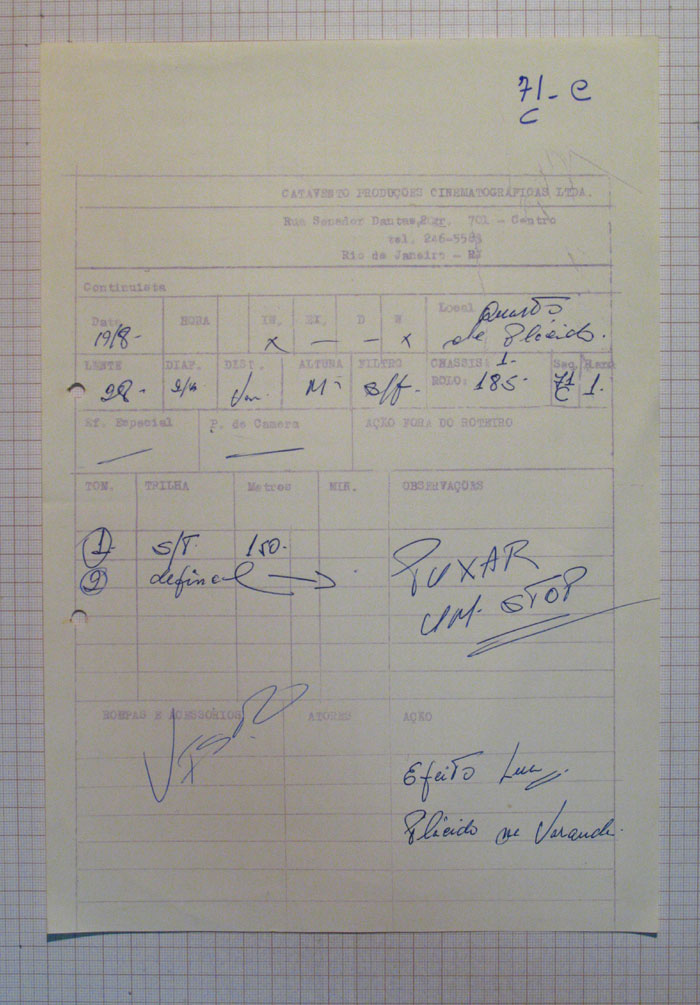 71-C
C
CATAVENTO PRODUÇOES CINEMATOGRÁFICAS LTDA.
Rua Senador Dantas, gr. 700 - Centro
tel. 246-5563
Rio de Janeiro - RJ
Continuista
Data HORA IN. EX. D N Local Quarto
19/8- x — — x de Plácido.
LENTE DIAF. DIST. ALTURA FILTRO CHASSIS: 1. Seq. Plano
28- M- s/f- ROLO: 185- 71 C 1.
Ef. Especial P. de Camera AÇÃO FORA DO ROTEIRO
TOM. TRILHA Metros MIN. OBSERVAÇOES
1 S/T. 150-
2 PUXAR
UM STOP
ROUPAS E ACESSÓRIOS ATORES AÇÃO
Efeito Luz
Plácido na Varanda.